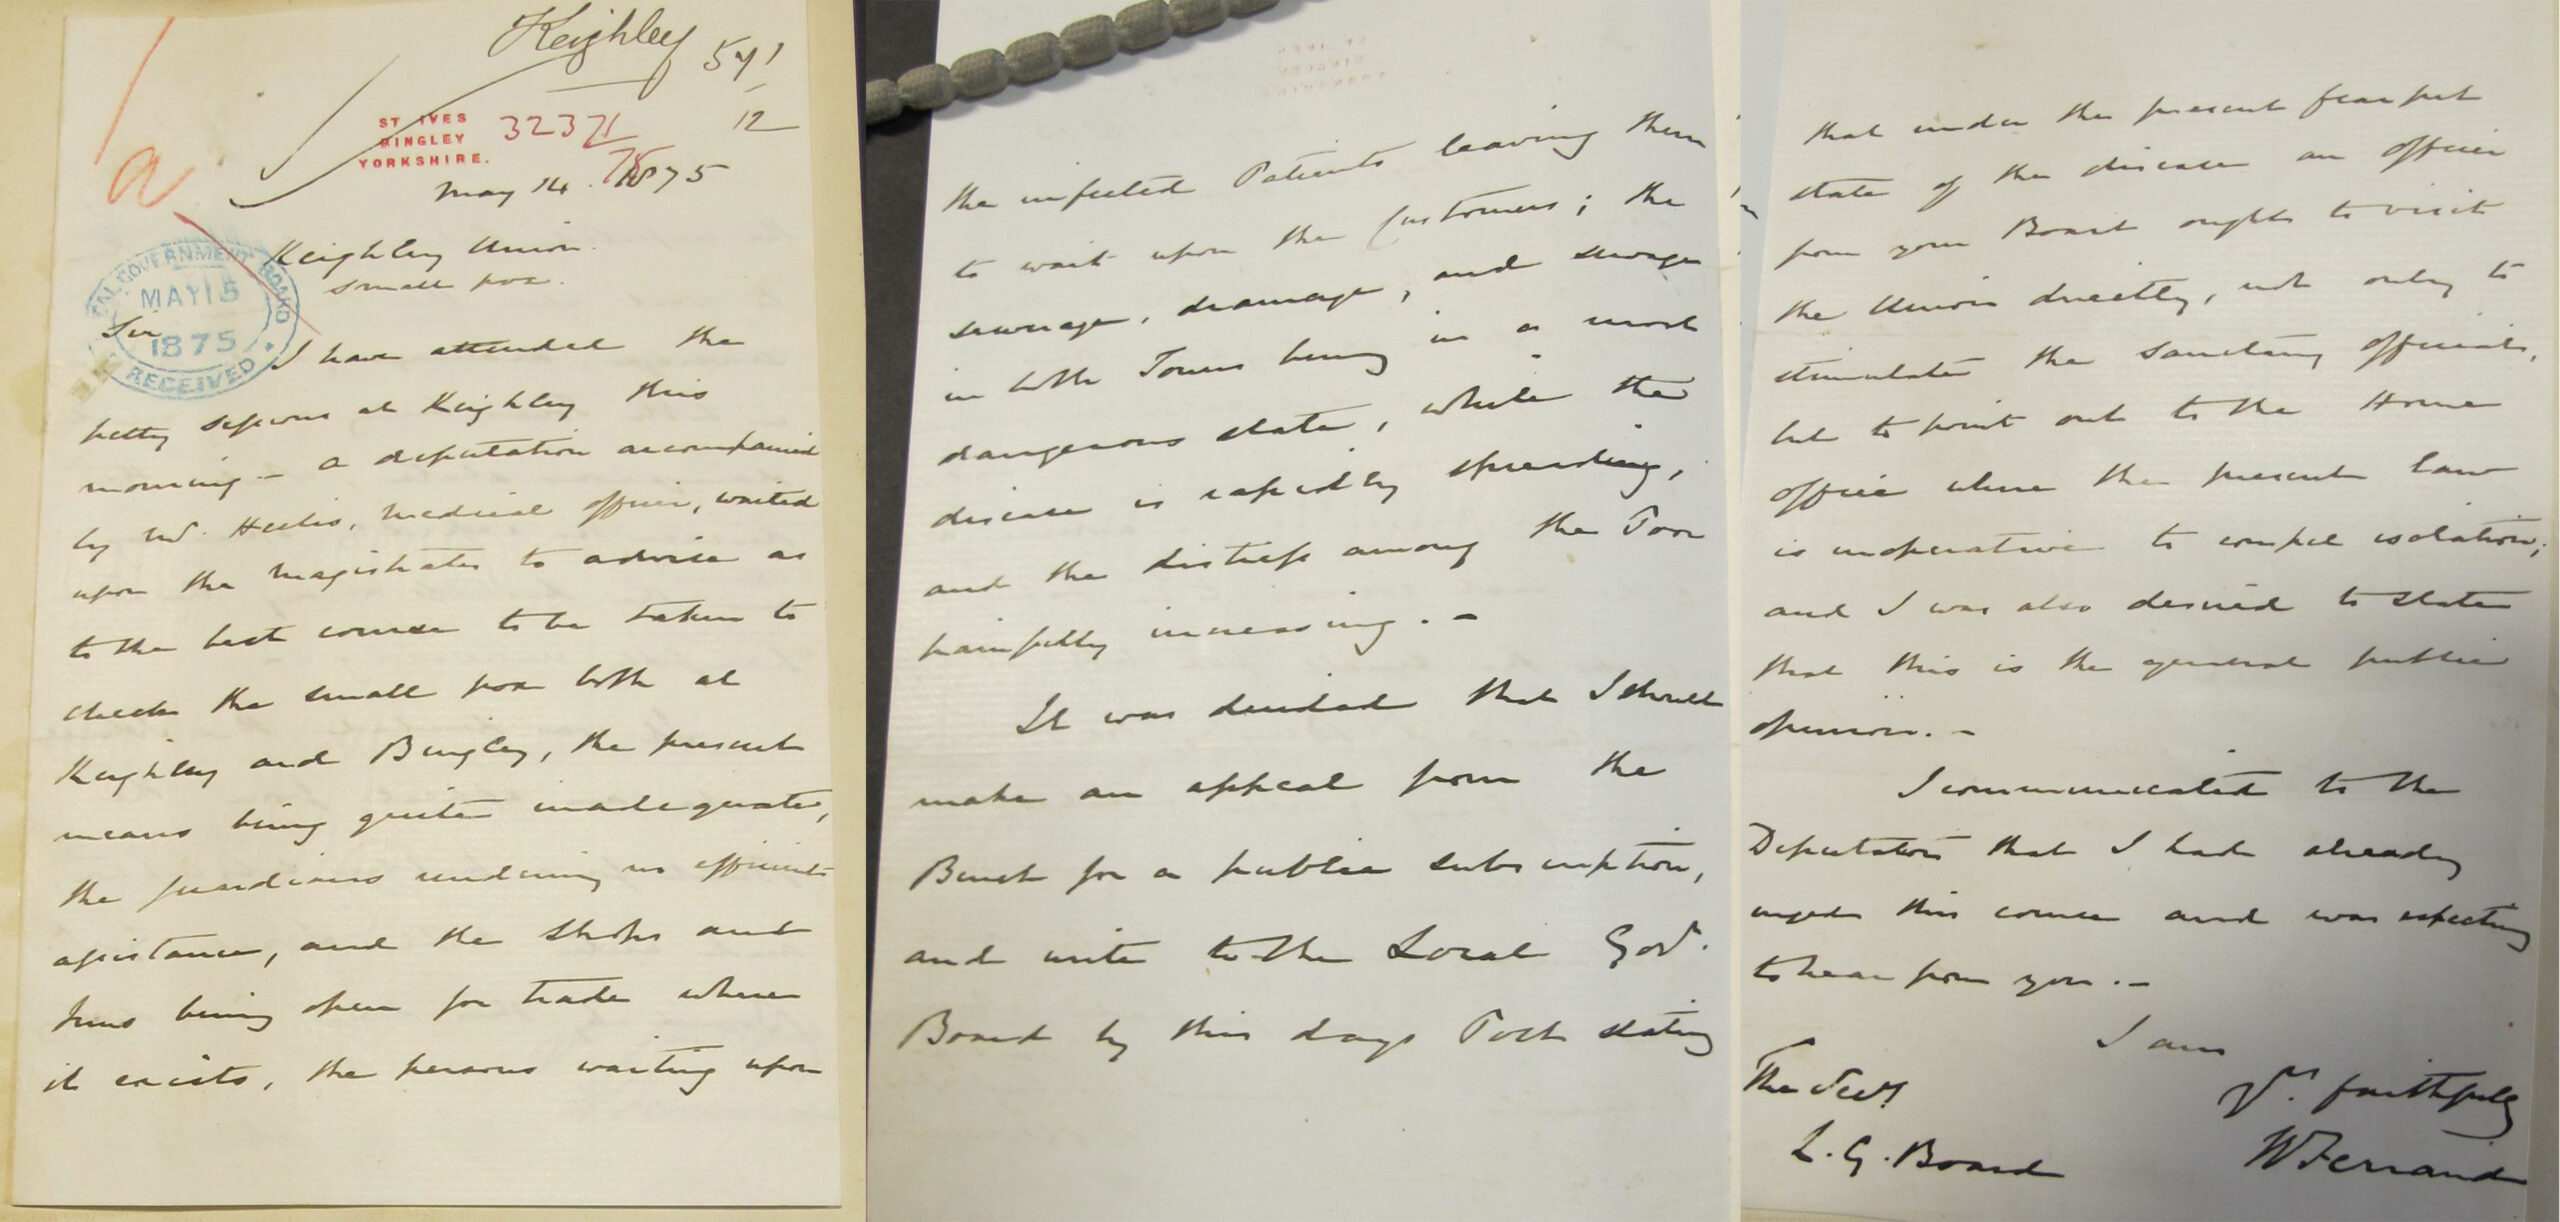 Keighley
571
12
ST IVES
BINGLEY
YORKSHIRE.
32371
75
May 14. 1875
a
Keighley Union.
small pox.
LOCAL GOVERNMENT BOARD
MAY 15
1875
RECEIVED
Sir
I have attended the
petty sessions at Keighley this
morning – a deputation accompanied
by Mr. Heelis, medical officer, waited
upon the magistrates to advise as
to the best course to be taken to
check the small pox both at
Keighley and Bingley, the present
means being quite inadequate,
the guardians rendering no efficient
assistance, and the shops and
Inns being open for trade where
it exists, the persons waiting upon
the infected Patients leaving them
to wait upon the Customers; the
sewerage, drainage, and sewage
in both Towns being in a most
dangerous state, while the
disease is rapidly spreading,
and the distress among the Poor
painfully increasing. –
It was decided that I should
make an appeal from the
Bench for a public subscription,
and write to the Local Govt.
Board by this days Post stating
that under the present fearful
state of the disease an officer
from your Board ought to visit
the Union directly, not only to
stimulate the sanitary officials,
but to point out to the Home
office where the present law
is inoperative to compel isolation;
and I was also desired to state
that this is the general public
opinion. –
I communicated to the
Deputation that I had already
urged this course and was expecting
to hear from you. –
I am
Yrs. faithfully
WFerrand
The Secy.
L. G. Board